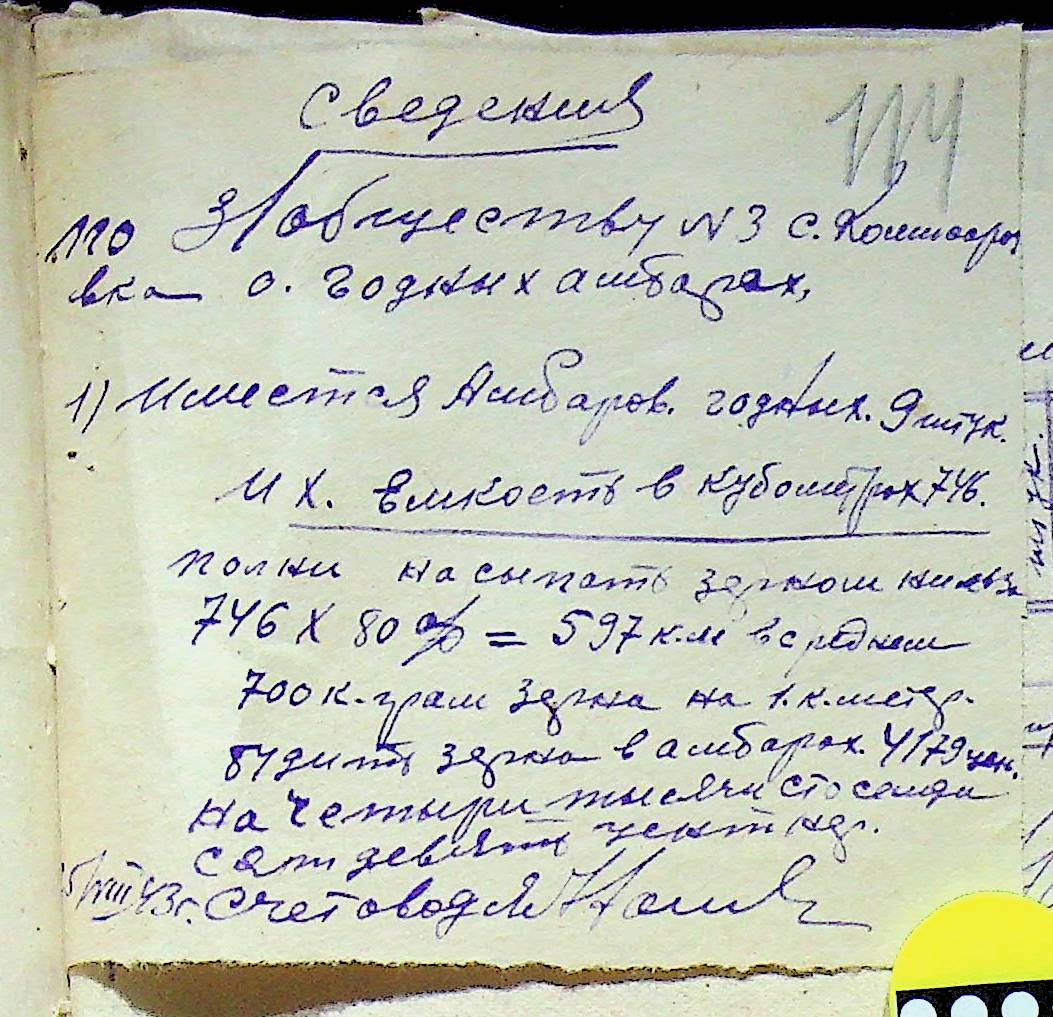 Сведения
114
по З/обществу № 3 с. Комисаро
вка о. годных амбарах,
1) Имеется Амбаров. годных. 9 штук.
Их. Емкость в кубометрах 746.
полни насыпать зерном нильзя
746 х 80% = 597 к.м в среднем
700 к.-грам зерна на 1. к. метр.
будить зерна в амбарах. 4179 цен.
на четыри тысячи сто семде
сят девять центнер.
5/VIII 43 г. Счетовод